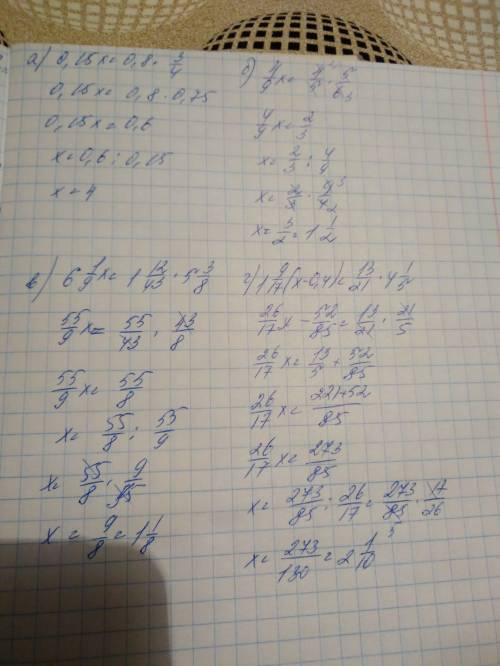 а) 0,15x = 0,8 · 3/4
0,15x = 0,8 · 0,75
0,15x = 0,6
x = 0,6 : 0,15
x = 4
б) 4/9 x = 4/5 · 5/6 3
4/9 x = 2/3
x = 2/3 : 4/9
x = 2/3 · 9 3/4 2
x = 3/2 = 1 1/2
в) 6 1/9 x = 1 12/43 · 5 3/8
55/9 x = 55/43 · 43/8
55/9 x = 55/8
x = 55/8 : 55/9
x = 55/8 · 9/55
x = 9/8 = 1 1/8
г) 1 9/17 (x - 0,4) = 13/21 · 4 1/5
26/17 x - 52/85 = 13/21 · 21/5
26/17 x = 13/5 + 52/85
26/17 x = 221+52/85
26/17 x = 273/85
x = 273/85 : 26/17 = 273/85 5 · 17/26
x = 273/130 = 2 1/10